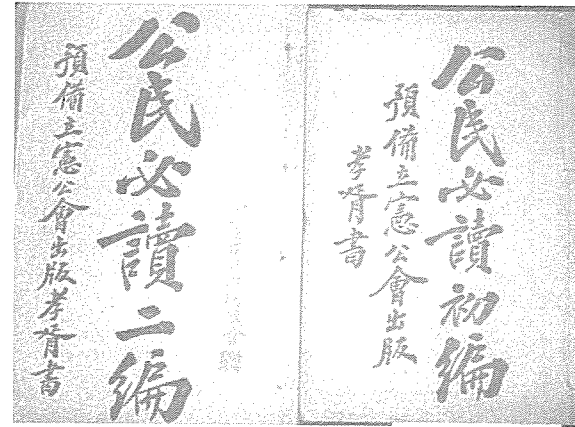 公民必讀初編
預備立憲公會出版
孝胥書
公民必讀二編
預備立憲公會出版孝胥書